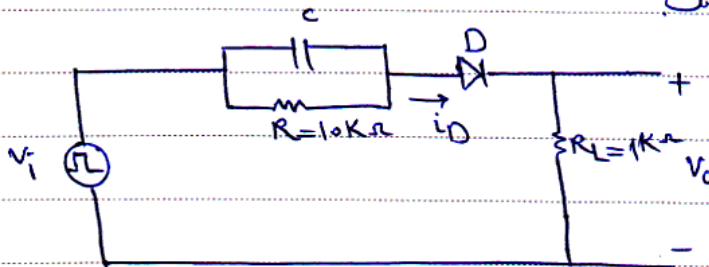 C
D
+
R=10KΩ
iD
Vi
RL=1KΩ
Vo
-